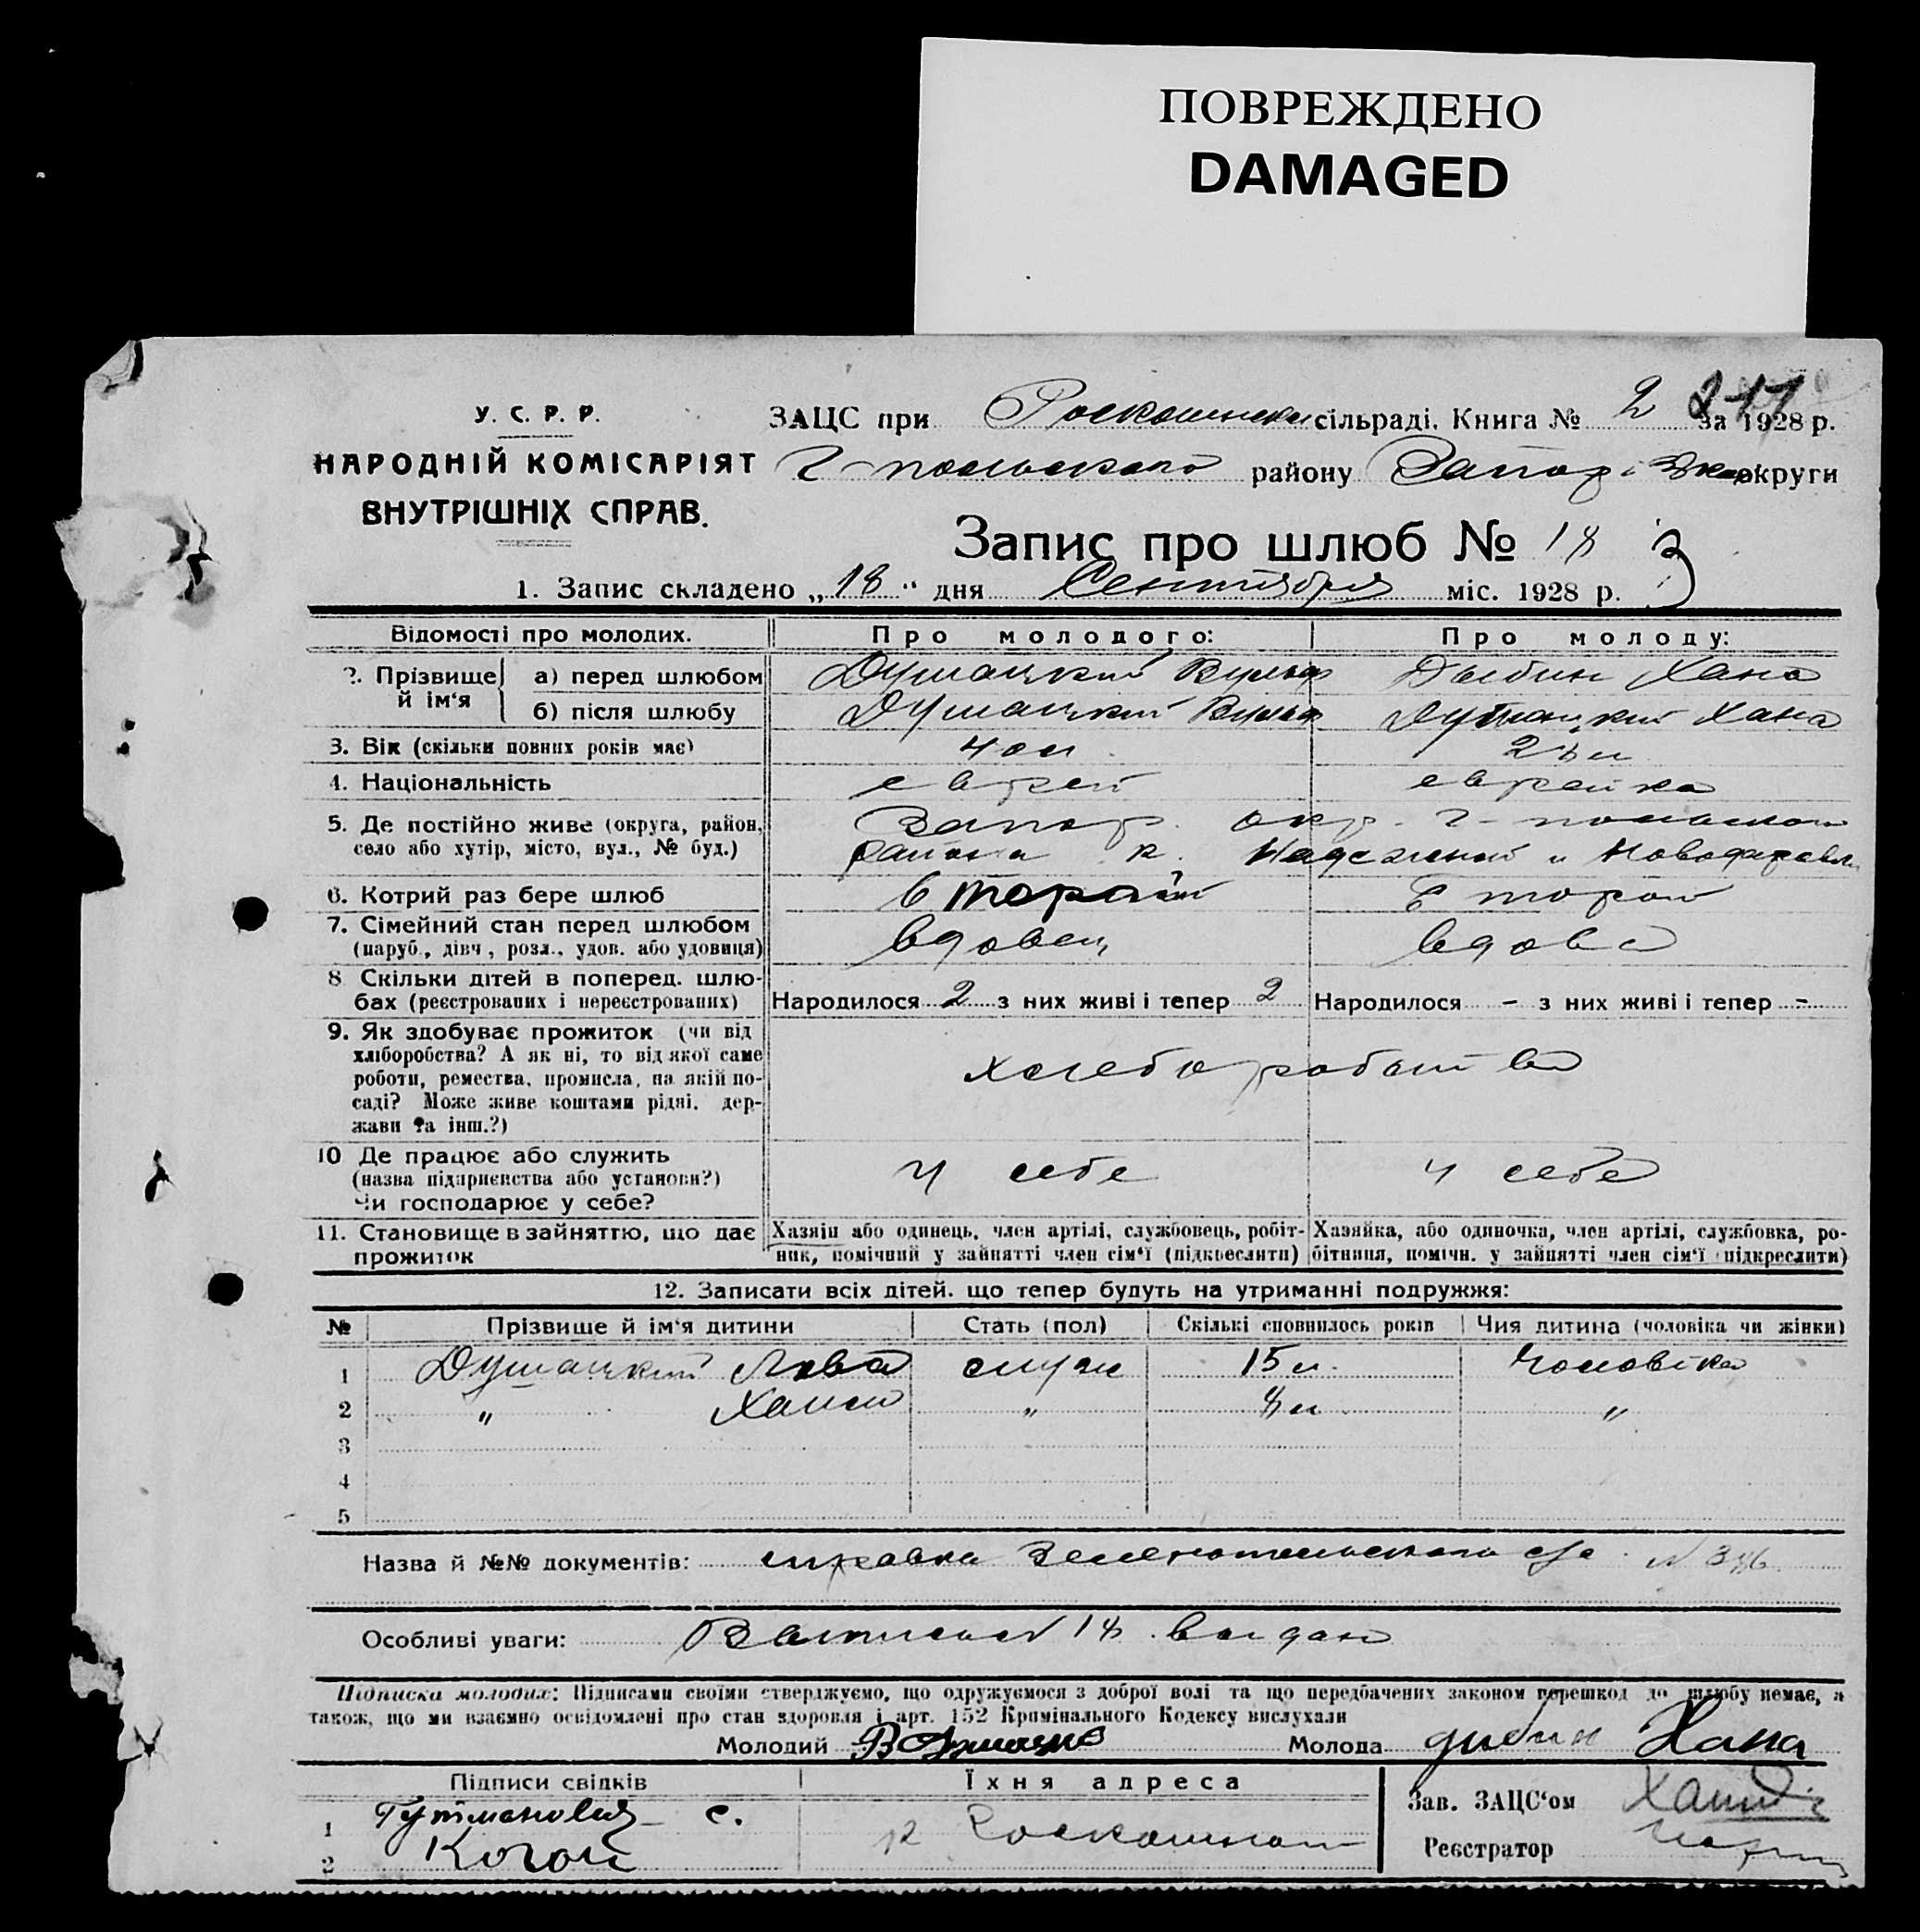 ПОВРЕЖДЕНО
DAMAGED
У. С. Р. Р.
НАРОДНІЙ КОМІСАРІЯТ
ВНУТРІШНІХ СПРАВ.
ЗАЦС при сільраді. Книга № 2 за 1928 р.
району округи
Запис про шлюб № 18
1. Запис складено „18“ дня Сентября міс. 1928 р.
Відомості про молодих. Про молодого: Про молоду:
2. Прізвище й ім‘я а) перед шлюбом Душацкий Вульф Дыбин Хана
б) після шлюбу Душацкий Вульф Душацкий Хана
3. Вік (скільки повних років має) 40 л
4. Національність еврей еврейка
5. Де постійно живе (округа, район, Запор. окр.
село або хутір, місто, вул., № буд.) района к.
6. Котрий раз бере шлюб второй второй
7. Сімейний стан перед шлюбом вдовец вдова
(паруб., дівч., розл., удов. або удовиця)
8 Скільки дітей в поперед. шлю-
бах (реєстрованих і нереєстрованих) Народилося 2 з них живі і тепер 2 Народилося - з них живі і тепер -
9. Як здобуває прожиток (чи від
хліборобства? А як ні, то від якої саме
роботи, ремества, промисла, на якій по-
саді? Може живе коштами рідні, дер-
жави та інш.?)
10 Де працює або служить у себе у себе
(назва підприємства або установи?)
Чи господарює у себе?
11. Становище в зайняттю, що дає Хазяїн або одинець, член артілі, службовець, робіт- Хазяйка, або одиночка, член артілі, службовка, ро-
прожиток ник, помічний у зайнятті член сім‘ї (підкреслити) бітниця, помічн. у зайнятті член сім‘ї (підкреслити)
12. Записати всіх дітей. що тепер будуть на утриманні подружжя:
№ Прізвище й ім‘я дитини Стать (пол) Скількі сповнилось років Чия дитина (чоловіка чи жінки)
1 Душацкий Лева 15 л. чоловіка
2 " " 8 л "
3
4
5
Назва й №№ документів: справка Зеленопольского с/с №
Особливі уваги: 18 выдан
Підписка молодих: Підписами своїми стверджуємо, що одружуємося з доброї волі та що передбачених законом перешкод до шлюбу немає, а
також, що ми взаємно освідомлені про стан здоровля і арт. 152 Кримінального Кодексу вислухали
Молодий Молода дибин Хана
Підписи свідків Їхня адреса
Зав. ЗАЦС‘ом
1 с.
2 Коган
Реєстратор